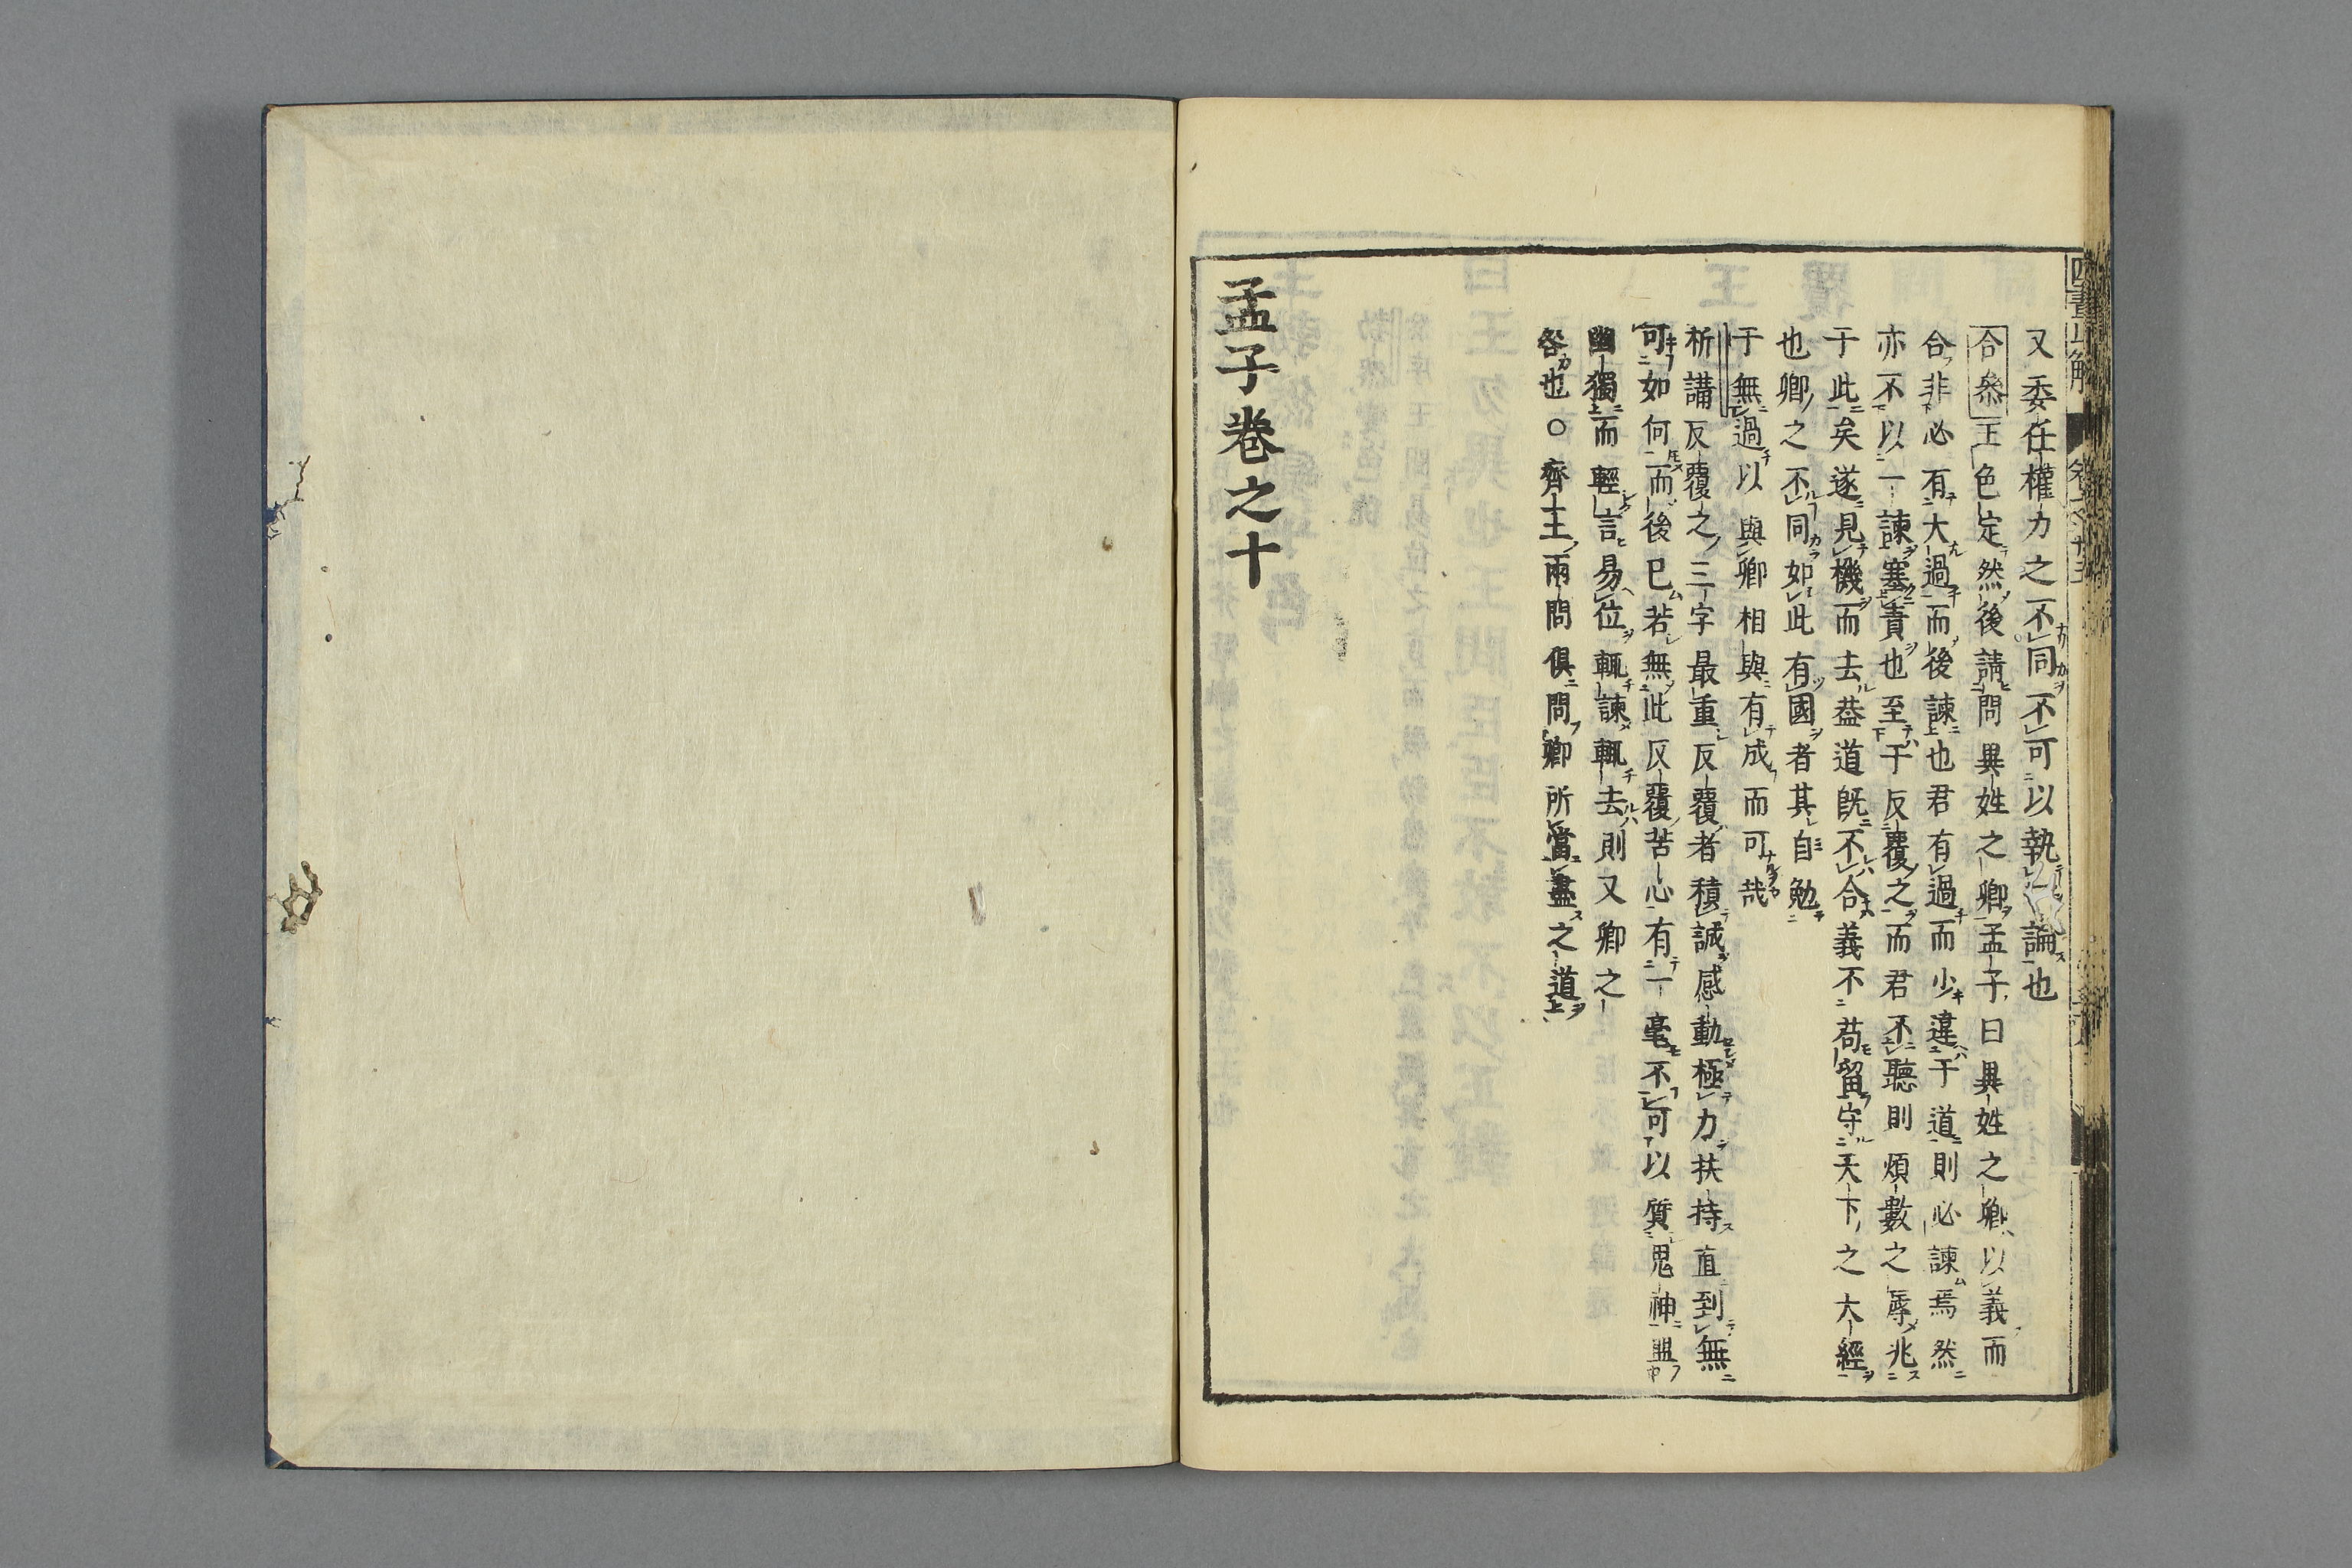 又委任權力之不同不可以執一論也
合叅王色定然後請問異姓之卿孟子曰異姓之卿以義而
合非必有大過而後諫也君有過而少違于道則必諫焉然
亦不以一諫塞責也至于反覆之而君不聽則煩數之辱兆
于此矣遂見機而去葢道既不合義不苟留守天下之大經
也卿之不同如此有國者其自勉
于無過以與卿相與有成而可哉
析講反覆之三字最重反覆者積誠感動極力扶持直到無
可如何而後已若無此反覆苦心有一毫不可以質鬼神盟
幽獨而輕言易位輒諫輒去則又卿之
咎也○齊王兩問俱問卿所當盡之道
孟子卷之十